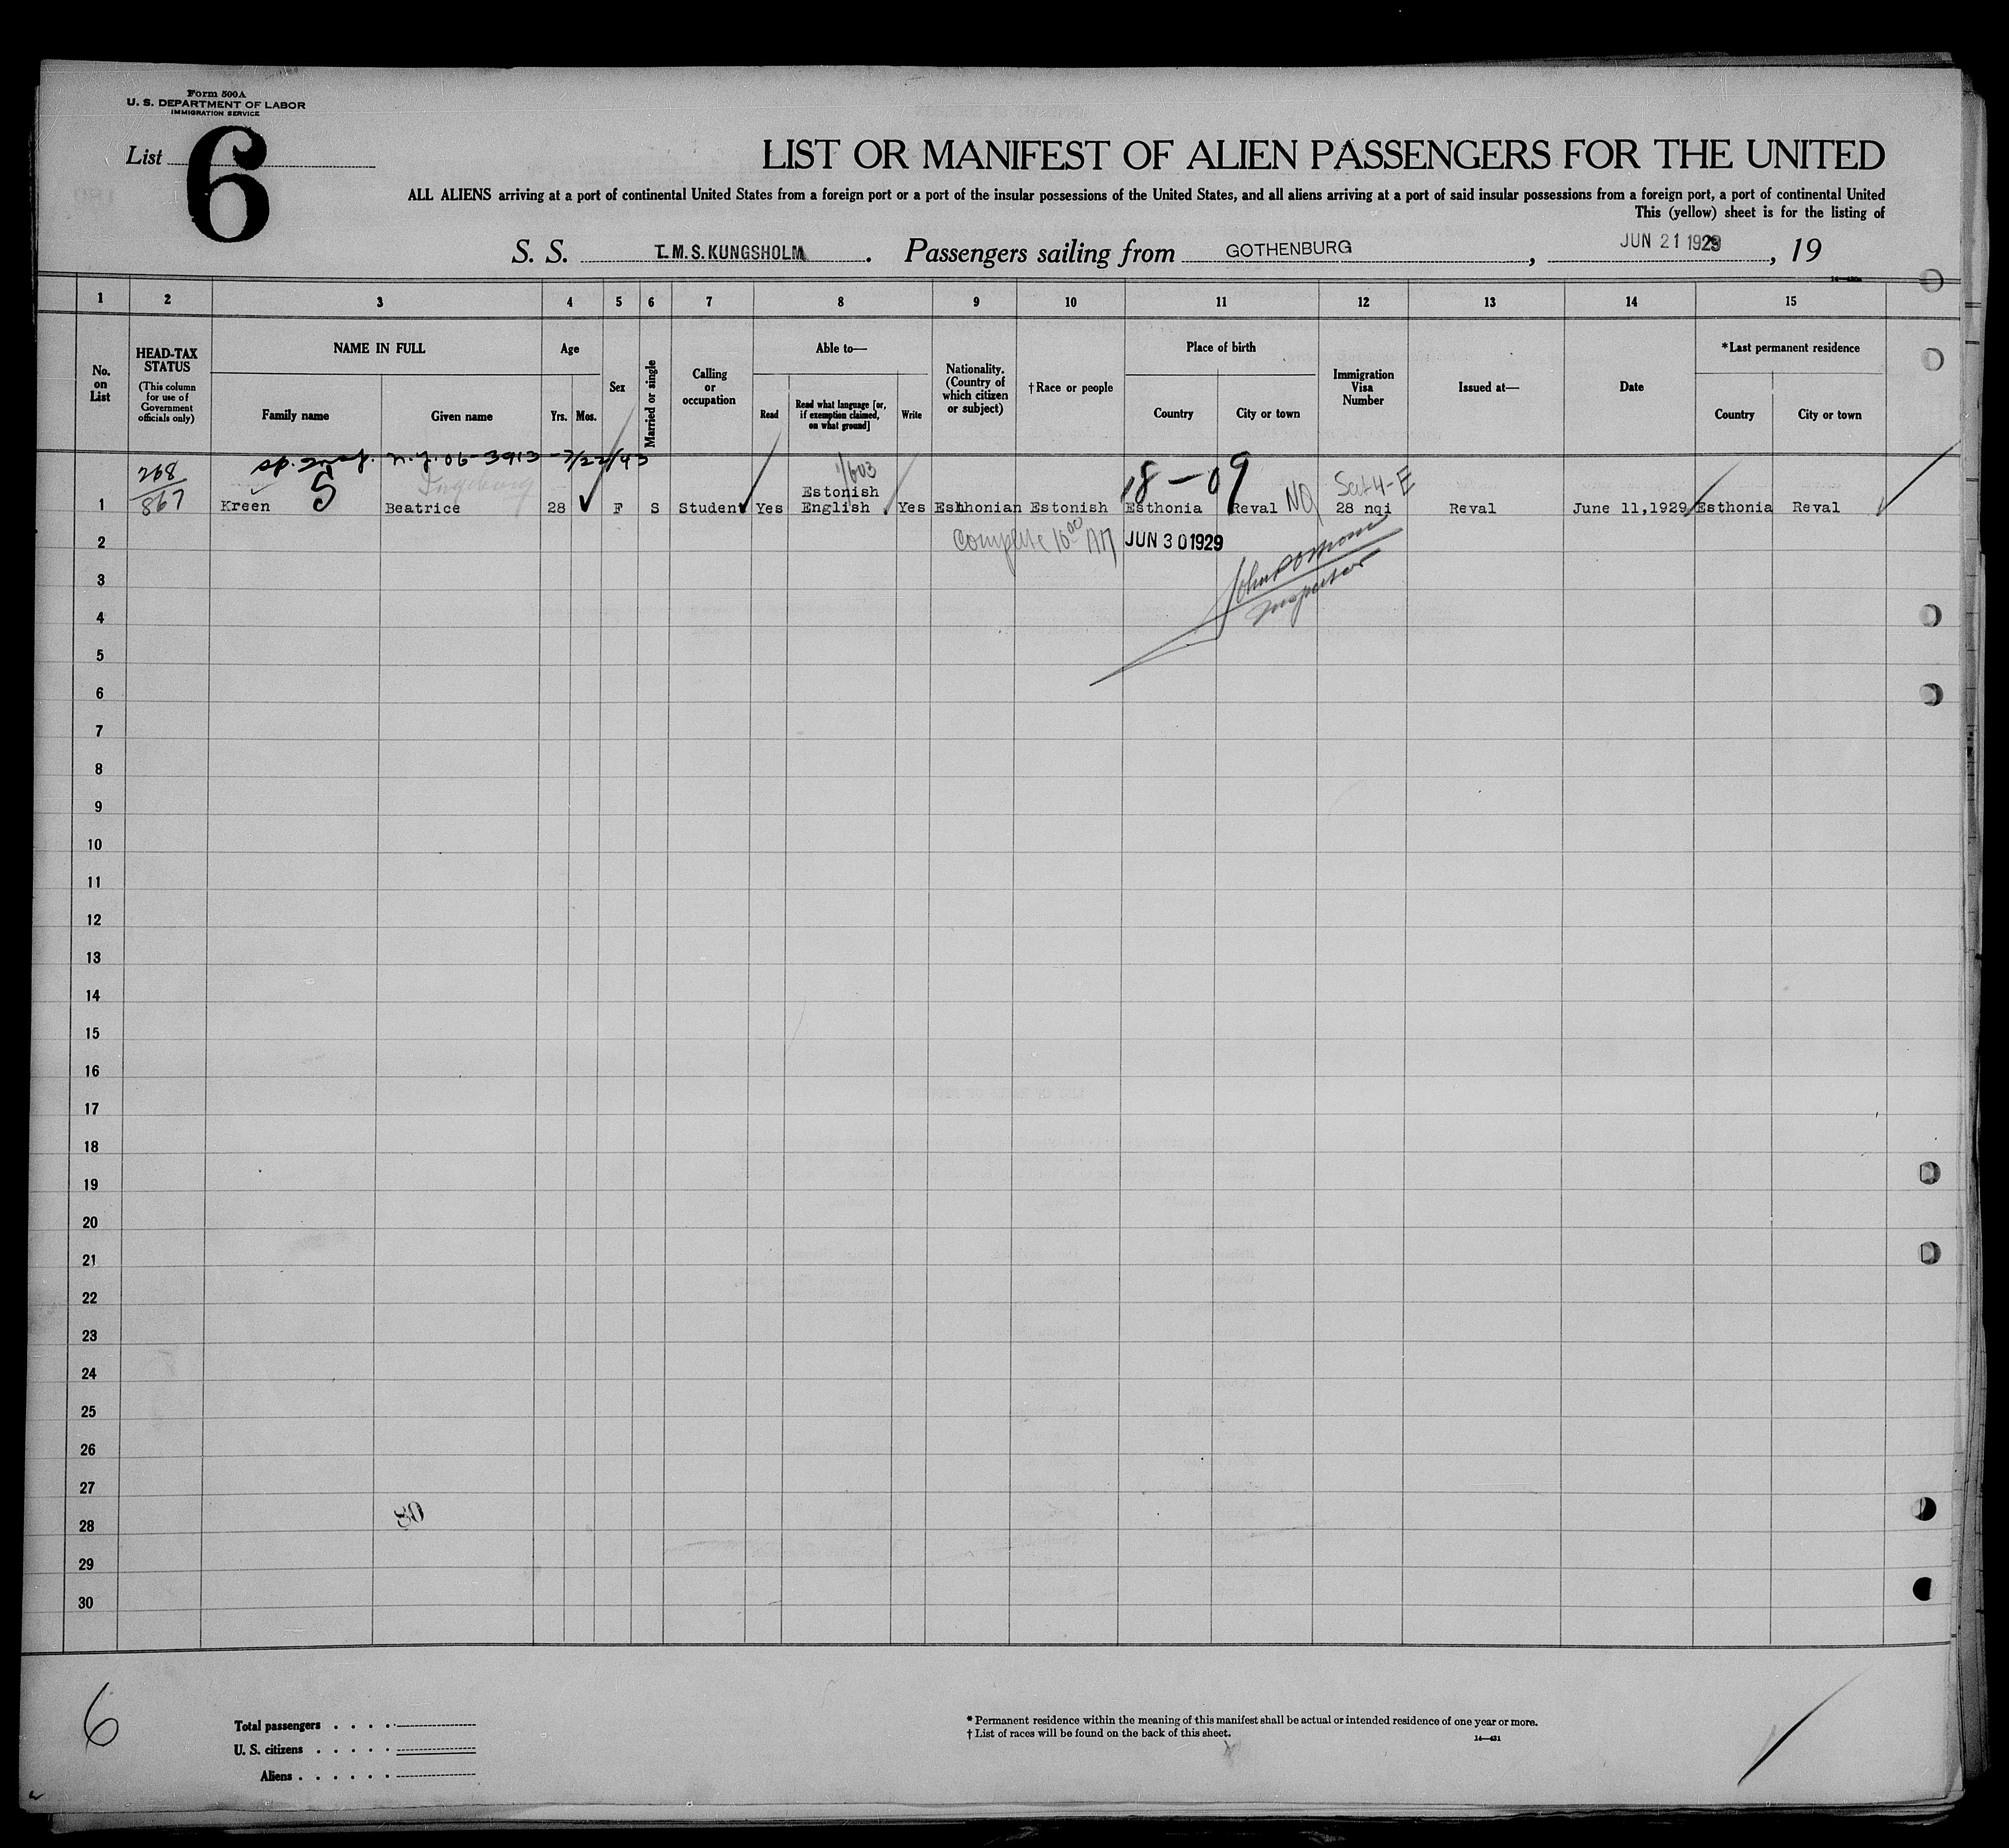 Form 500A
U. S. DEPARTMENT OF LABOR
IMMIGRATION SERVICE
List 6
LIST OR MANIFEST OF ALIEN PASSENGERS FOR THE UNITED
ALL ALIENS arriving at a port of continental United States from a foreign port or a port of the insular possessions of the United States, and all aliens arriving at a port of said insular possessions from a foreign port, a port of continental United
This (yellow) sheet is for the listing of
S. S. T.M.S. KUNGSHOLM. Passengers sailing from GOTHENBURG, JUN 21 1929, 19
1 2 3 4 5 6 7 8 9 10 11 12 13 14 15
No. on List
HEAD-TAX STATUS
(This column for use of Government officials only)
NAME IN FULL
Family name
Given name
Age
Yrs.
Mos.
Sex
Married or single
Calling or occupation
Able to—
Read
Read what language [or, if exemption claimed, on what ground]
Write
Nationality. (Country of which citizen or subject)
†Race or people
Place of birth
Country
City or town
Immigration Visa Number
Issued at—
Date
*Last permanent residence
Country
City or town
268
867
06-3913
5
Ingeborg
1/603
18-09
NQ
Sec 4-E
1 Kreen Beatrice 28 F S Student Yes Estonish English Yes Esthonian Estonish Esthonia Reval 28 nqi Reval June 11,1929 Esthonia Reval
2 complete 10 00 AM JUN 30 1929
Inspector
3
4
5
6
7
8
9
10
11
12
13
14
15
16
17
18
19
20
21
22
23
24
25
26
27
28
29
30
80
6
Total passengers
U. S. citizens
Aliens
* Permanent residence within the meaning of this manifest shall be actual or intended residence of one year or more.
† List of races will be found on the back of this sheet.
14—431